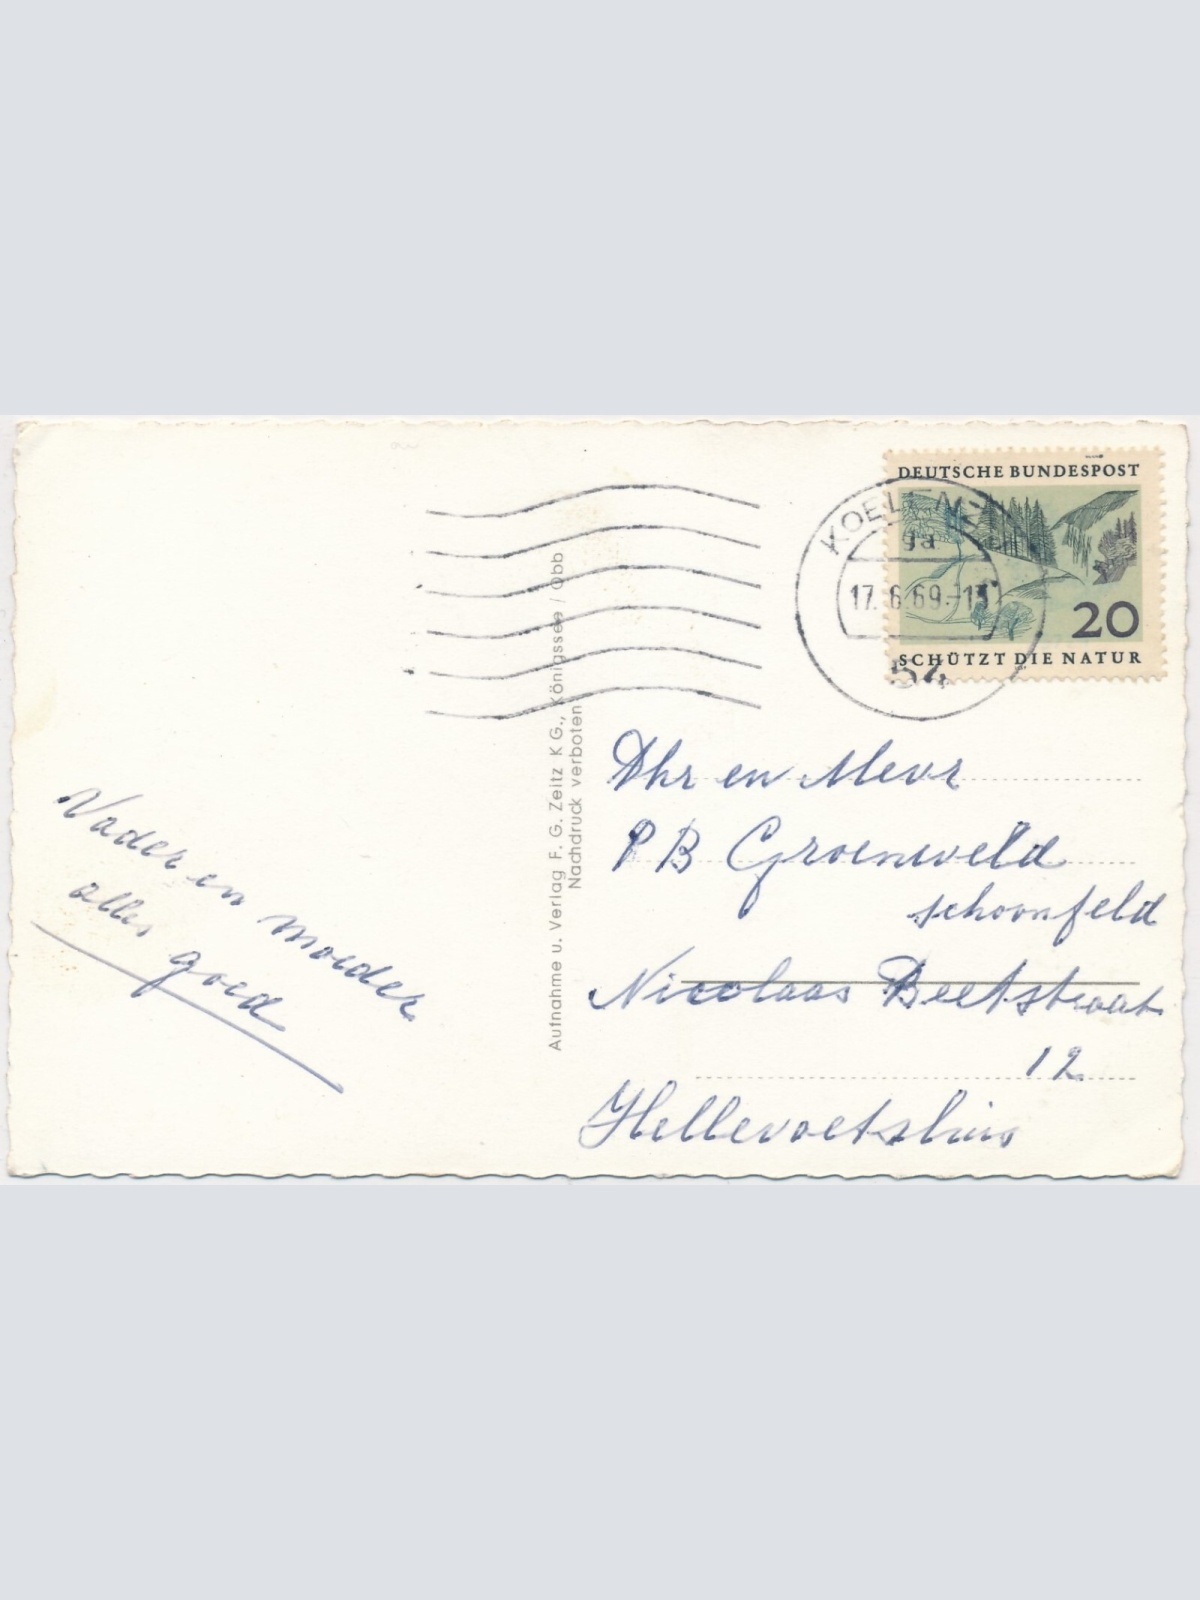 DEUTSCHE BUNDESPOST
20
SCHÜTZT DIE NATUR
ga
17.6.69.-13
54
Vader en moeder
alles goed
Aufnahme u. Verlag F. G. Zeitz K G., Königssee / Obb
Nachdruck verboten
Dhr en Mevr
P B Groeneveld
schoonfeld
Nicolaas Beetstraat
12
Hellevoetsluis